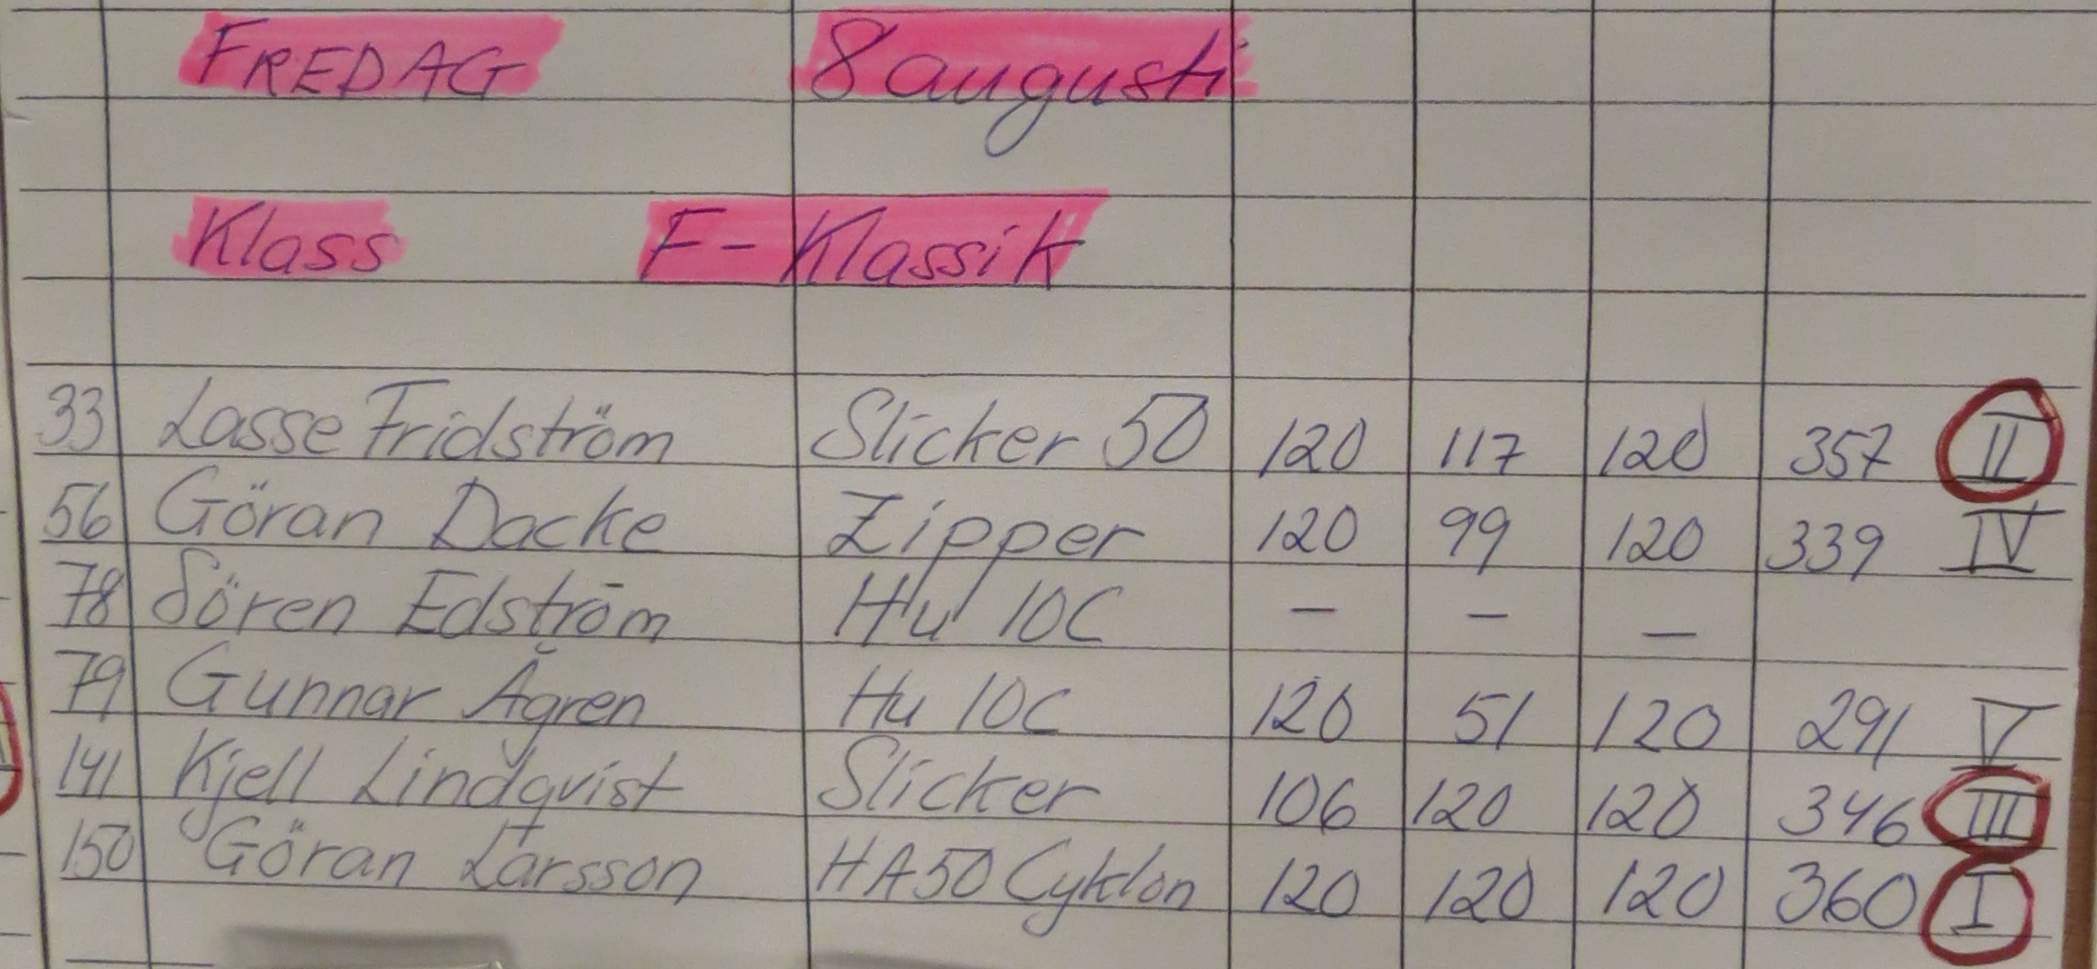 FREDAG 8 augusti
Klass F-Klassik
33 Lasse Fridström Slicker 50 120 117 120 357 II
56 Göran Dacke Zipper 120 99 120 339 IV
78 Sören Edström Hu 10C – – –
79 Gunnar Ågren Hu 10C 120 51 120 291 V
141 Kjell Lindqvist Slicker 106 120 120 346 III
150 Göran Larsson HA50 Cyklon 120 120 120 360 I